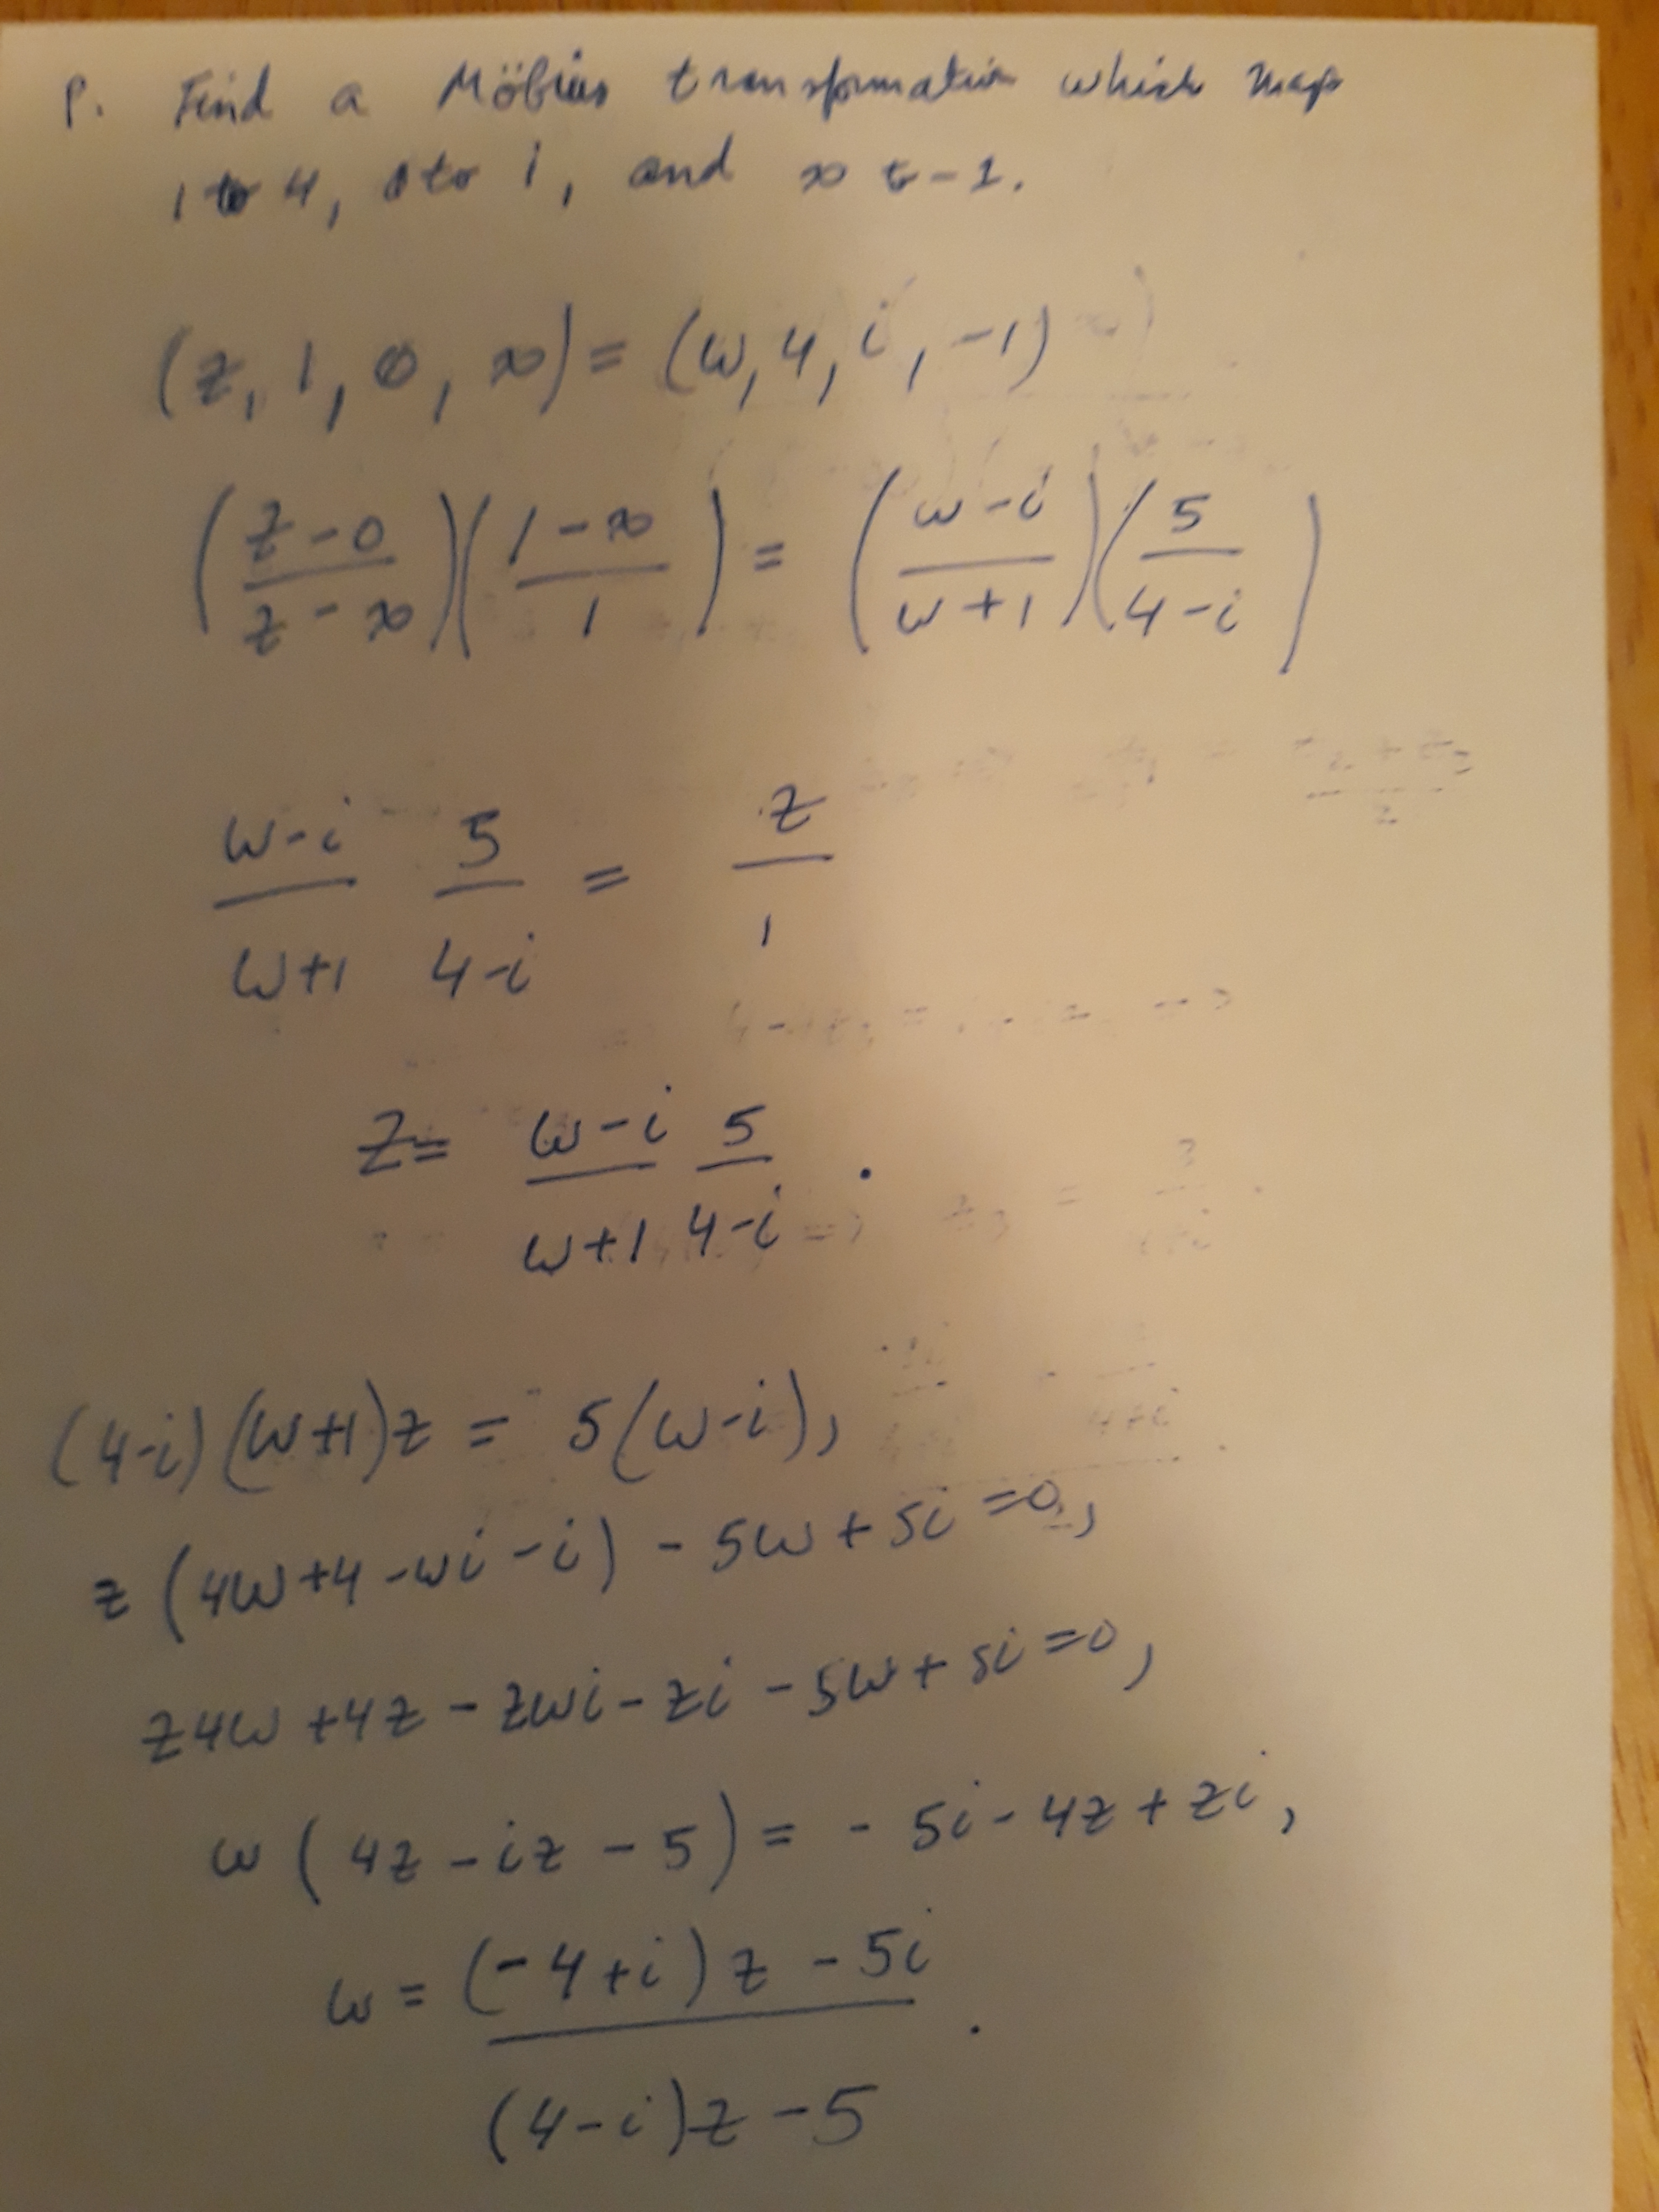 P. Find a Möbius transformation which maps
1 to 4, 0 to i, and ∞ to -1.
(z, 1, 0, ∞) = (w, 4, i, -1)
((z-0)/(z-∞))((1-∞)/1) = ((w-i)/(w+1))(5/(4-i))
(w-i)/(w+1) 5/(4-i) = z/1
z = (w-i)/(w+1) 5/(4-i).
(4-i)(w+1)z = 5(w-i),
z(4w+4-wi-i) - 5w + 5i = 0,
z4w + 4z - zwi - zi - 5w + 5i = 0,
w(4z - iz - 5) = - 5i - 4z + zi,
w = ((-4+i)z - 5i)/((4-i)z - 5).